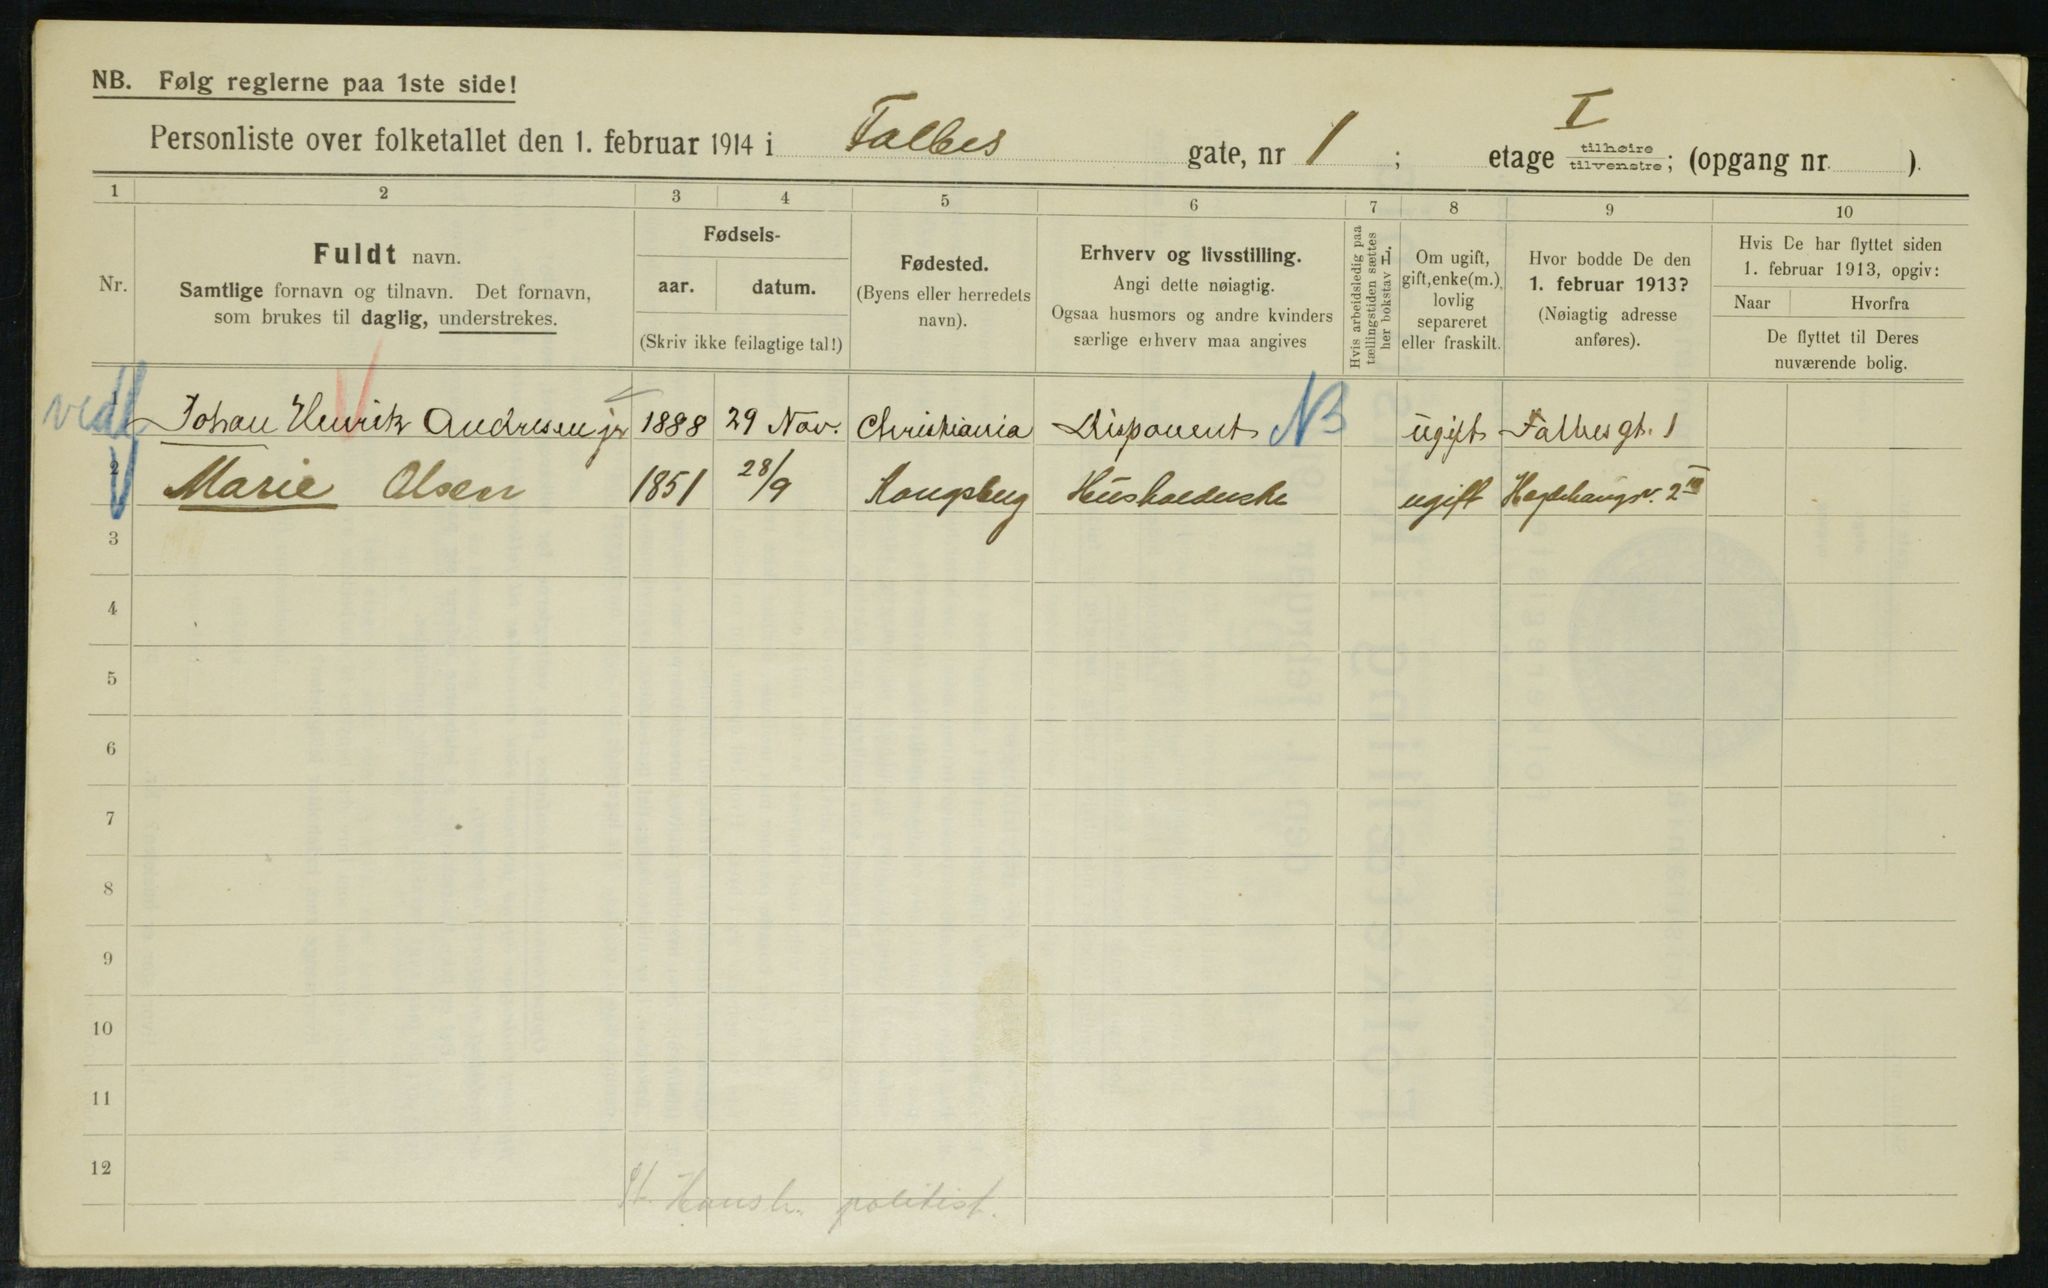 NB. Følg reglerne paa 1ste side!
Personliste over folketallet den 1. februar 1914 i Falbes gate, nr 1; etage I tilhøire tilvenstre; (opgang nr. ).
1 2 3 4 5 6 7 8 9 10
Nr.
Fuldt navn.
Samtlige fornavn og tilnavn. Det fornavn,
som brukes til daglig, understrekes.
Fødsels-
aar. datum.
(Skriv ikke feilagtige tal!)
Fødested.
(Byens eller herredets
navn).
Erhverv og livsstilling.
Angi dette nøiagtig.
Ogsaa husmors og andre kvinders
særlige erhverv maa angives
Hvis arbeidsledig paa
tællingstiden sættes
her bokstav L.
Om ugift,
gift, enke(m.),
lovlig
separeret
eller fraskilt.
Hvor bodde De den
1. februar 1913?
(Nøiagtig adresse
anføres).
Hvis De har flyttet siden
1. februar 1913, opgiv:
Naar Hvorfra
De flyttet til Deres
nuværende bolig.
1 Johan Henrik Andresen jr 1888 29 Nov. Christiania Disponent NB ugift Falbesgt. 1
2 Marie Olsen 1851 28/9 Kongsberg Husholderske ugift Hegdehaugsv. 2
3
4
5
6
7
8
9
10
11
12
St. Hansh. politist.